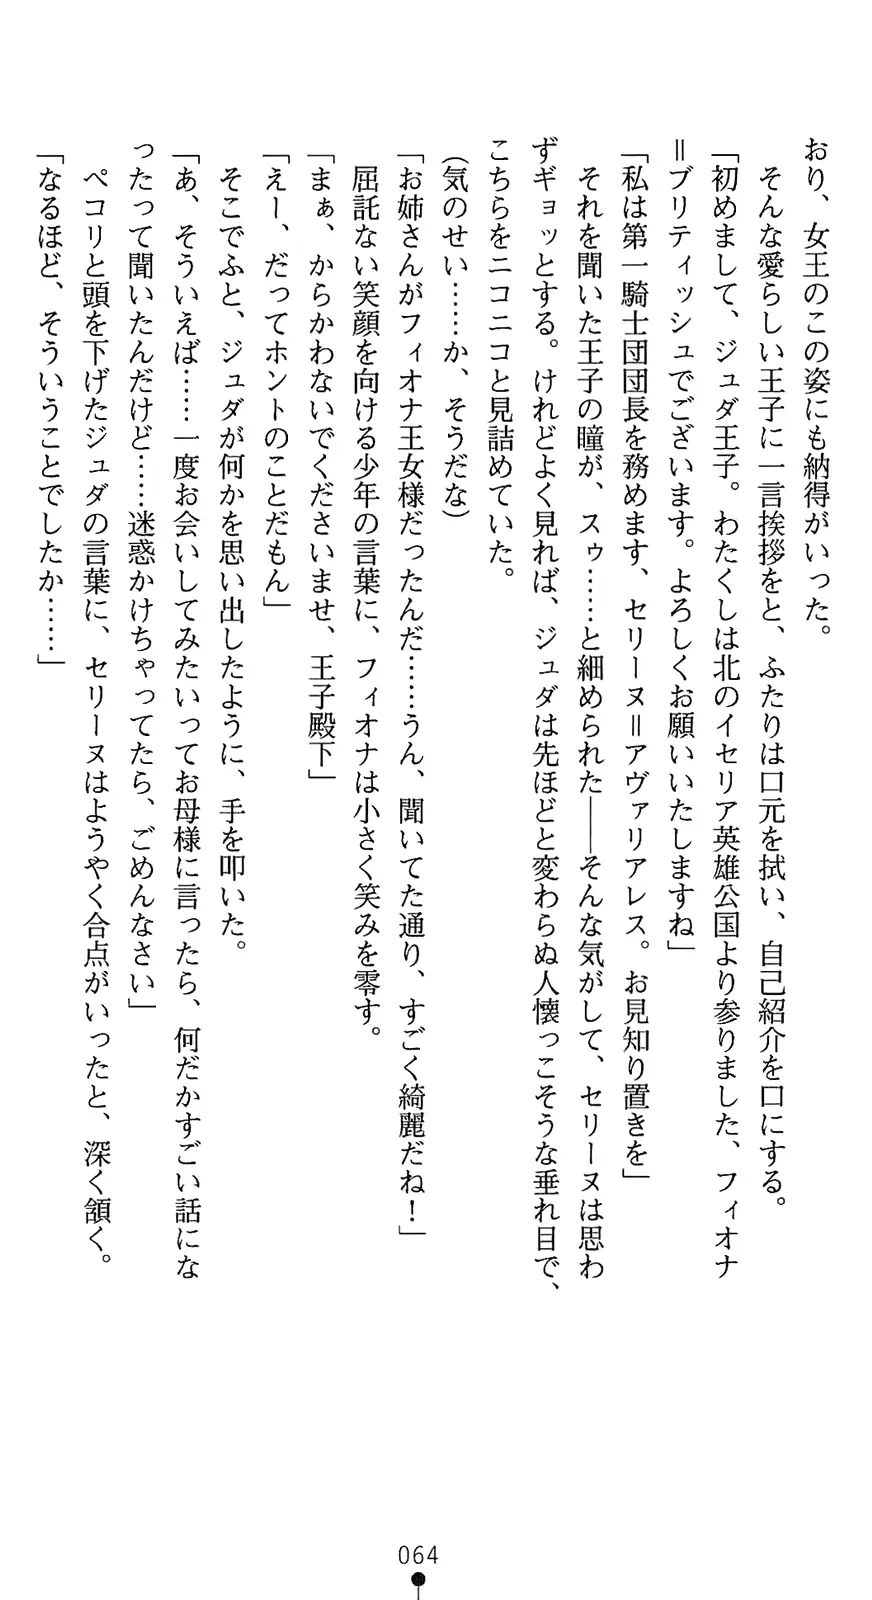 おり、女王のこの姿にも納得がいった。
そんな愛らしい王子に一言挨拶をと、ふたりは口元を拭い、自己紹介を口にする。
「初めまして、ジュダ王子。わたくしは北のイセリア英雄公国より参りました、フィオナ
＝ブリティッシュでございます。よろしくお願いいたしますね」
「私は第一騎士団団長を務めます、セリーヌ＝アヴァリアレス。お見知り置きを」
それを聞いた王子の瞳が、スゥ……と細められた――そんな気がして、セリーヌは思わ
ずギョッとする。けれどよく見れば、ジュダは先ほどと変わらぬ人懐っこそうな垂れ目で、
こちらをニコニコと見詰めていた。
（気のせい……か、そうだな）
「お姉さんがフィオナ王女様だったんだ……うん、聞いてた通り、すごく綺麗だね！」
屈託ない笑顔を向ける少年の言葉に、フィオナは小さく笑みを零す。
「まぁ、からかわないでくださいませ、王子殿下」
「えー、だってホントのことだもん」
そこでふと、ジュダが何かを思い出したように、手を叩いた。
「あ、そういえば……一度お会いしてみたいってお母様に言ったら、何だかすごい話にな
ったって聞いたんだけど……迷惑かけちゃってたら、ごめんなさい」
ペコリと頭を下げたジュダの言葉に、セリーヌはようやく合点がいったと、深く頷く。
「なるほど、そういうことでしたか……」
064